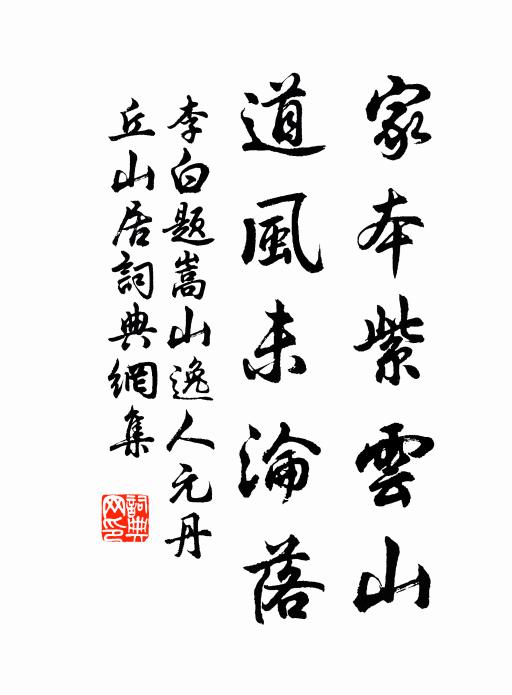 家本紫雲山
道風未淪落
李白題嵩山逸人元丹
丘山居詞典網集
詞典网印